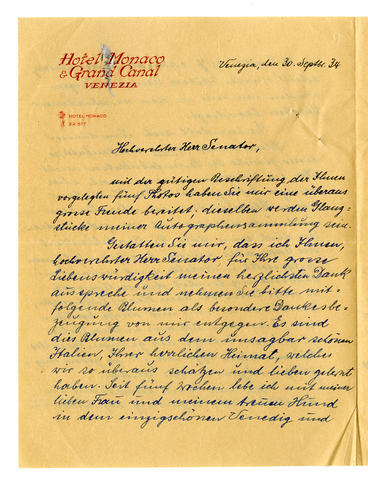 Hotel Monaco
& Grand Canal
VENEZIA
Venezia, den 30. Septbr. 34
HOTEL MONACO
Hochverehrter Herr Senator,
mit der gütigen Beschriftung der Ihnen
vorgelegten fünf Photos haben Sie mir eine überaus
grosse Freude bereitet, dieselben werden Glanz-
stücke meiner Autographensammlung sein.
Gestatten Sie mir, dass ich Ihnen,
hochverehrter Herr Senator, für Ihre grosse
Liebenswürdigkeit meinen herzlichsten Dank
ausspreche und nehmen Sie bitte mit-
folgende Blumen als besondere Dankesbe-
zeugung von mir entgegen. Es sind
dies Blumen aus dem unsagbar schönen
Italien, Ihrer herrlichen Heimat, welches
wir so überaus schätzen und lieben gelernt
haben. Seit fünf Wochen lebe ich mit meiner
lieben Frau und meinem treuen Hund
in dem einzigschönen Venedig und